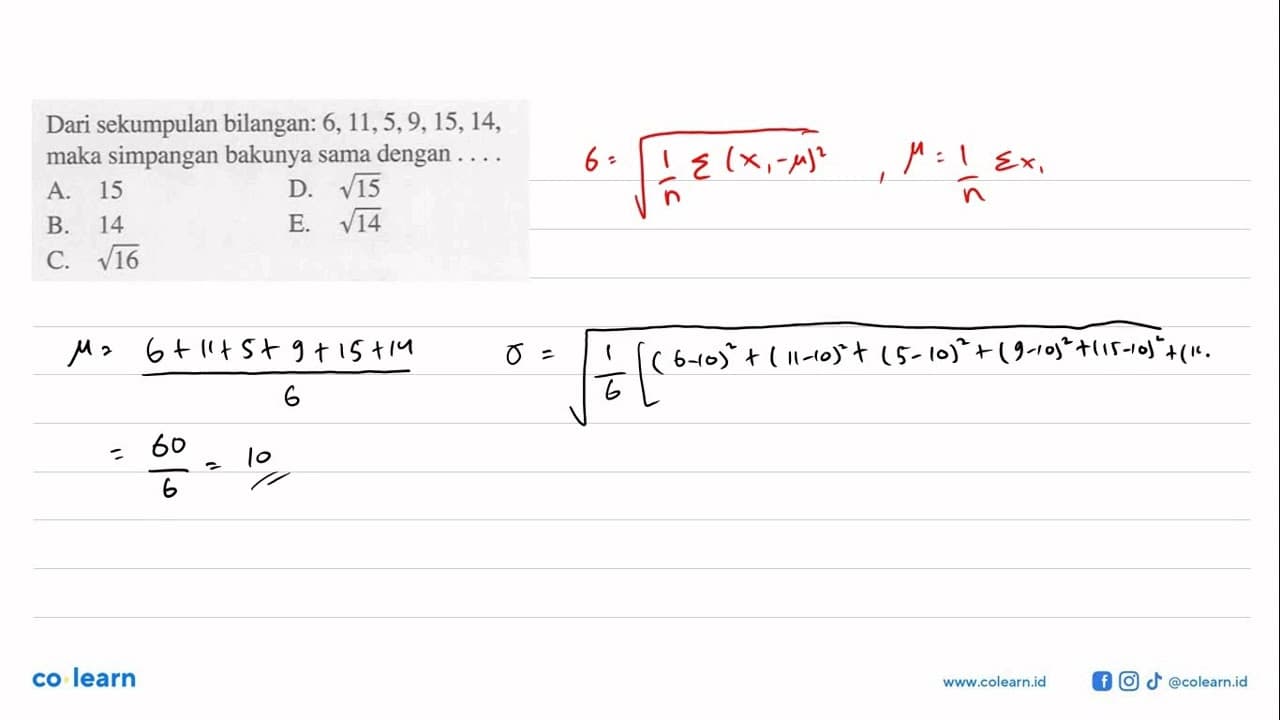 Dari sekumpulan bilangan: 6, 11, 5, 9, 15, 14,
maka simpangan bakunya sama dengan . . . .
A. 15 D. √15
B. 14 E. √14
C. √16
σ = √ 1/n Σ (x₁-μ)² , μ = 1/n Σx₁
μ = 6+11+5+9+15+14 / 6
= 60/6 = 10
σ = √ 1/6 [(6-10)² + (11-10)² + (5-10)² + (9-10)² + (15-10)² + (1
co·learn
www.colearn.id
@colearn.id